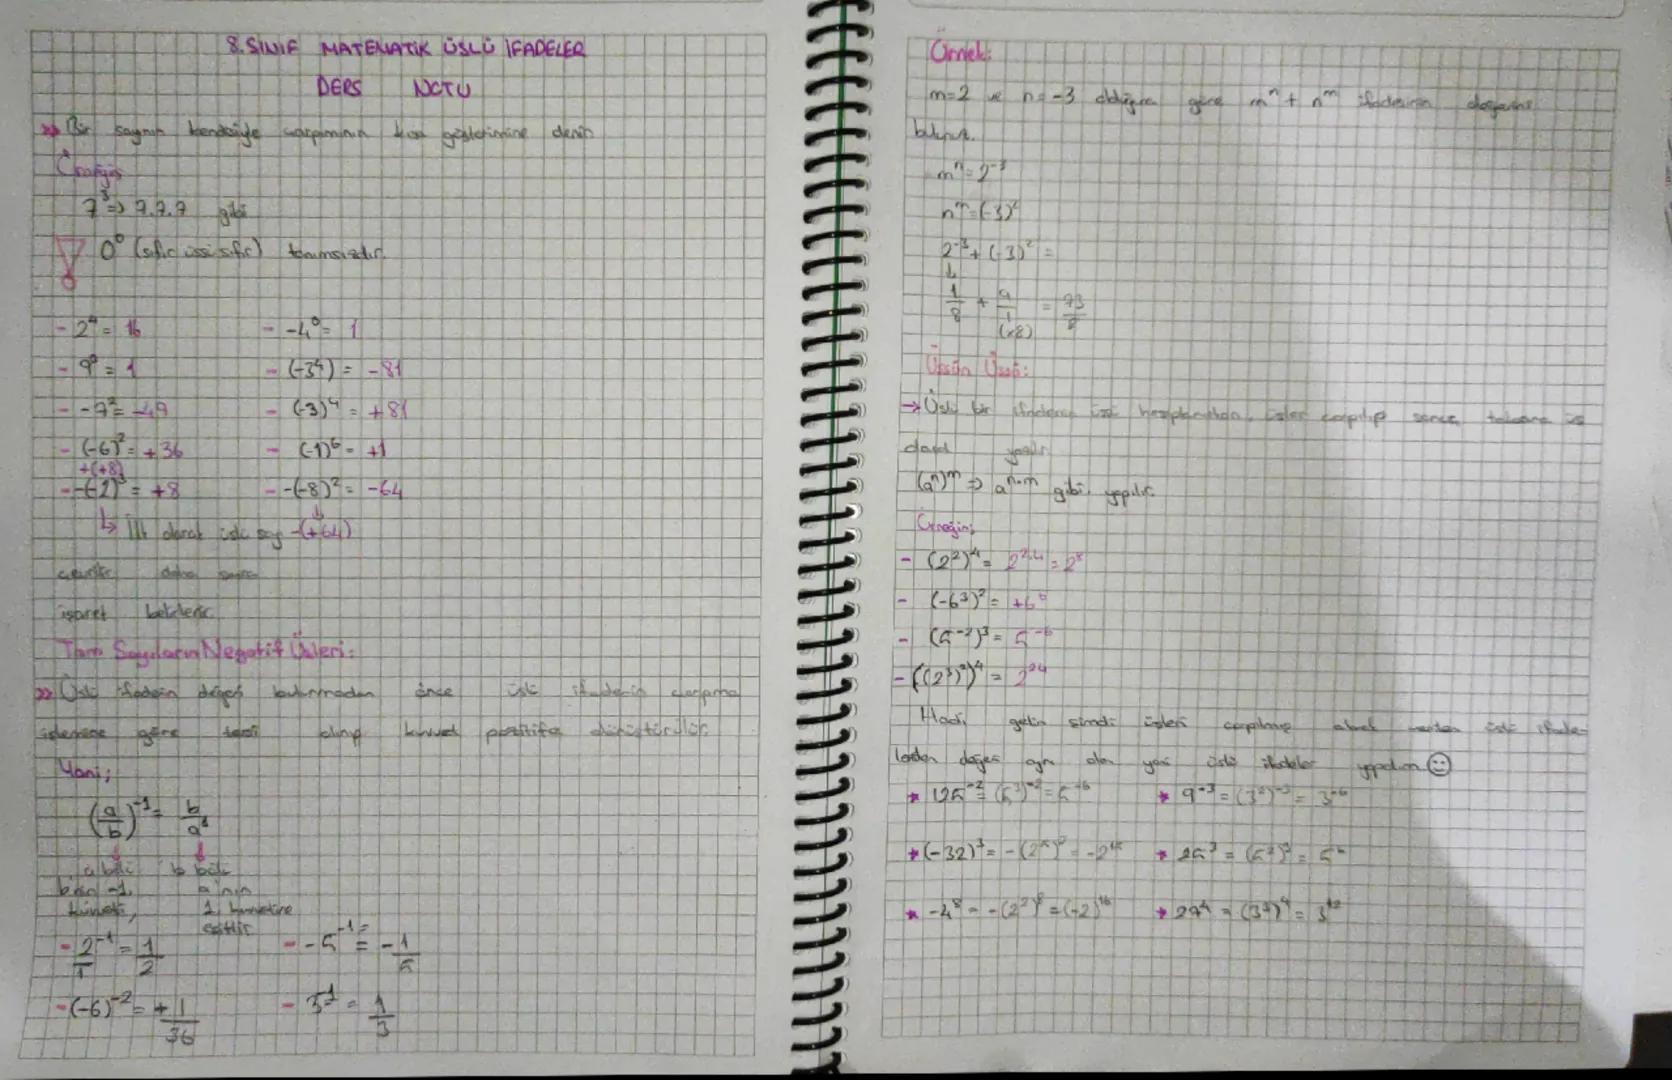 8. SINIF MATEMATİK ÜSLÜ İFADELER
DERS NOTU
>> Bir sayının kendisiyle çarpımının kısa gösterimine denir.
Örneğin
7³ => 7.7.7 gibi
0⁰ (sıfır üssü sıfır) tanımsızdır.
- 2⁴ = 16
- -4⁰ = 1
- 9⁰ = 1
- (-3⁴) = -81
- -7² = -49
- (-3)⁴ = +81
- (-6)² = +36
- (-1)⁶ = +1
+(+8)
- -(-2)³ = +8
- -(-8)² = -64
↳ İlk olarak üslü sayı
-(+64)
daha sonra
işaret belirlenir.
Tam Sayıların Negatif Üsleri:
>> Üslü ifadenin değeri bulunmadan önce üslü ifadenin çarpma
işlemine göre tersi alınıp kuvvet pozitife dönüştürülür.
Yani;
(a/b)⁻¹ = b/a¹
a bölü
b'nin -1.
kuvveti,
b bölü
a'nın
1. kuvvetine
eşittir
- 2⁻¹/1 = 1/2
- -5⁻¹ = = -1/5
- (-6)⁻² = +1/36
- 3⁻¹ = 1/3
Örnek:
m=2 ve n=-3 olduğuna göre mⁿ + nᵐ ifadesinin değerini
bulunuz.
mⁿ = 2⁻³
nᵐ = (-3)²
2⁻³ + (-3)² =
↓
1/8 + 9/1 = 73/8
(x8)
Üssün Üssü:
→ Üslü bir ifadenin üssü hesaplanırken, üsler çarpılıp sonra tabana üs
olarak yazılır.
(aⁿ)ᵐ => aⁿ·ᵐ gibi yapılır.
Örneğin;
- (2²)⁴ = 2²·⁴ = 2⁸
- (-6³)² = +6⁶
- (5⁻²)³ = 5⁻⁶
- ((2³)²)⁴ = 2²⁴
Hadi, gelin şimdi üsleri çarpılmış olarak verilen üslü ifade-
lerden değeri aynı olan yeni üslü ifadeler yapalım ☺
* 125⁻² = (5³)⁻² = 5⁻⁶
* 9⁻³ = (3²)⁻³ = 3⁻⁶
* (-32)³ = -(2⁵)³ = -2¹⁵
* 25³ = (5²)³ = 5⁶
* -4⁸ = -(2²)⁸ = (-2)¹⁶
* 27⁴ = (3³)⁴ = 3¹²